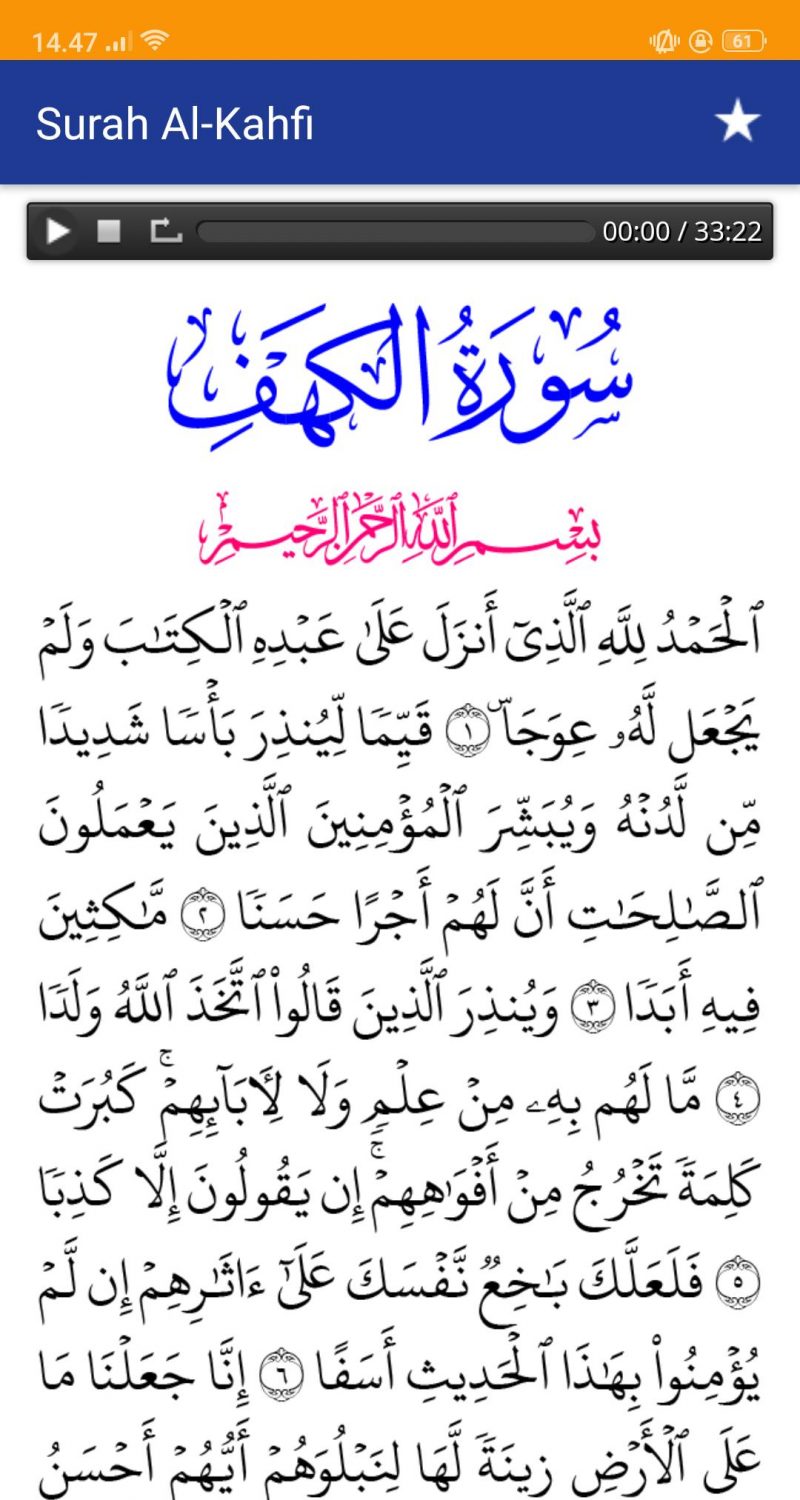 14.47
61
Surah Al-Kahfi
00:00 / 33:22
سُورَةُ الْكَهْفِ
بِسْمِ اللَّهِ الرَّحْمَٰنِ الرَّحِيمِ
ٱلْحَمْدُ لِلَّهِ ٱلَّذِىٓ أَنزَلَ عَلَىٰ عَبْدِهِ ٱلْكِتَـٰبَ وَلَمْ
يَجْعَل لَّهُۥ عِوَجَاۜ ۝١ قَيِّمًا لِّيُنذِرَ بَأْسًا شَدِيدًا
مِّن لَّدُنْهُ وَيُبَشِّرَ ٱلْمُؤْمِنِينَ ٱلَّذِينَ يَعْمَلُونَ
ٱلصَّـٰلِحَـٰتِ أَنَّ لَهُمْ أَجْرًا حَسَنًا ۝٢ مَّـٰكِثِينَ
فِيهِ أَبَدًا ۝٣ وَيُنذِرَ ٱلَّذِينَ قَالُوا۟ ٱتَّخَذَ ٱللَّهُ وَلَدًا
۝٤ مَّا لَهُم بِهِۦ مِنْ عِلْمٍ وَلَا لِـَٔابَآئِهِمْ ۚ كَبُرَتْ
كَلِمَةً تَخْرُجُ مِنْ أَفْوَٰهِهِمْ ۚ إِن يَقُولُونَ إِلَّا كَذِبًا
۝٥ فَلَعَلَّكَ بَـٰخِعٌ نَّفْسَكَ عَلَىٰٓ ءَاثَـٰرِهِمْ إِن لَّمْ
يُؤْمِنُوا۟ بِهَـٰذَا ٱلْحَدِيثِ أَسَفًا ۝٦ إِنَّا جَعَلْنَا مَا
عَلَى ٱلْأَرْضِ زِينَةً لَّهَا لِنَبْلُوَهُمْ أَيُّهُمْ أَحْسَنُ